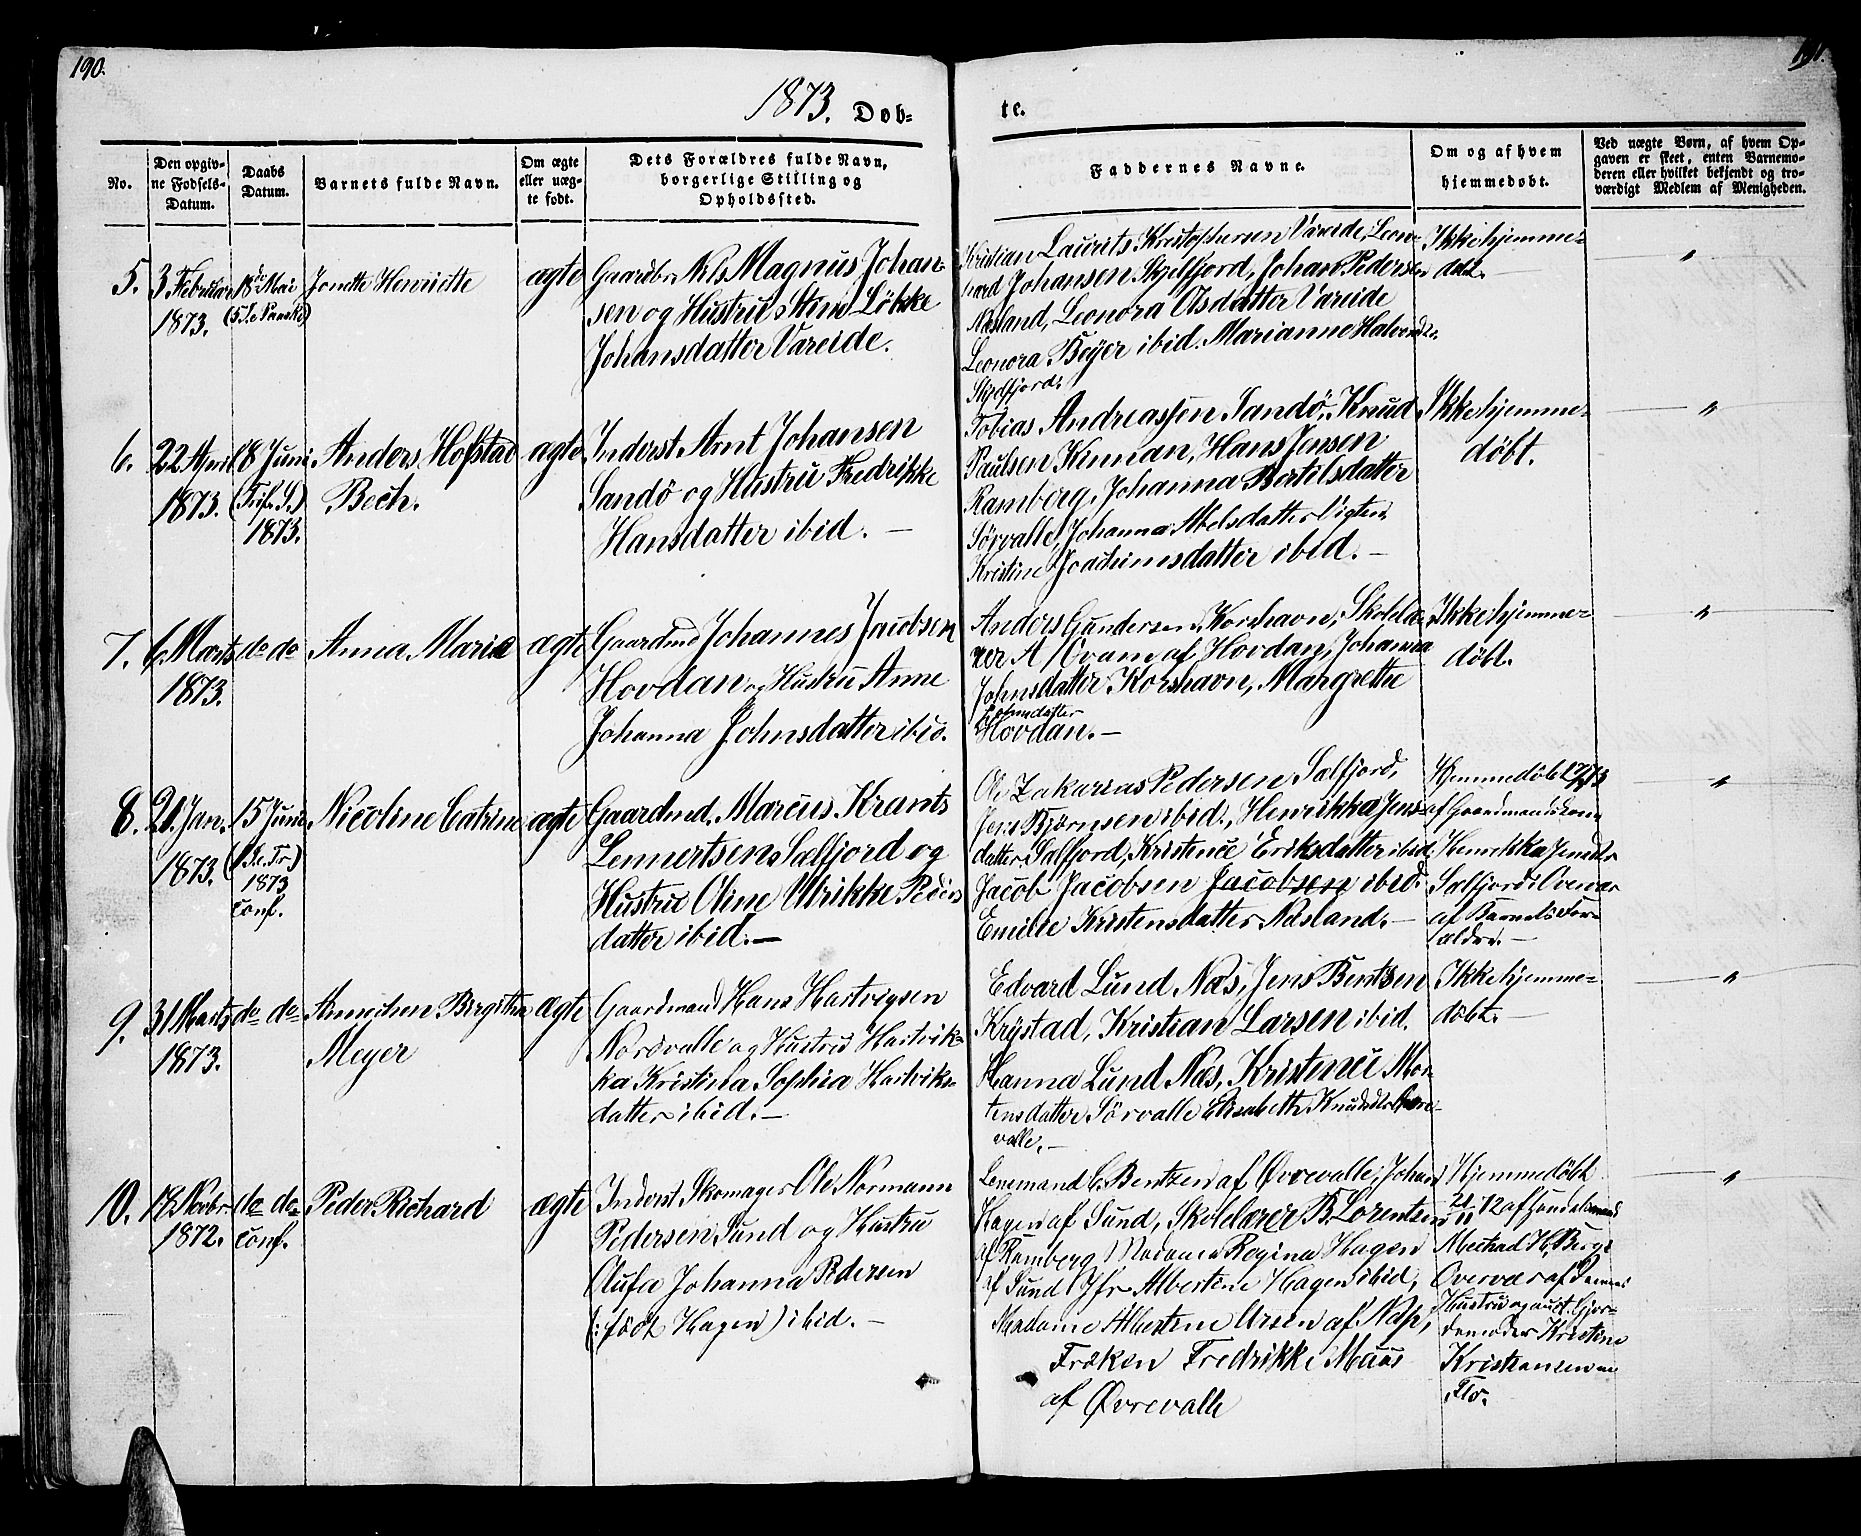 190.
191.
1873. Døb=
te.
No.
Den opgiv-
ne Fødsels-
Datum.
Daabs
Datum.
Barnets fulde Navn.
Om ægte
eller uæg-
te født.
Dets Forældres fulde Navn,
borgerlige Stilling og
Opholdssted.
Faddernes Navne.
Om og af hvem
hjemmedøbt.
Ved uægte Børn, af hvem Op-
gaven er skeet, enten Barnemo-
deren eller hvilket bekjendt og tro-
værdigt Medlem af Menigheden.
5.
3 Februar
1873.
18de Mai
(5 S. e. Paaske)
Jonette Henriette
ægte
Gaardbr. Nils Magnus Johan-
sen og Hustru Stine Løkke
Johansdatter Vareide.
Kristian Laurits Kristophersen Vareide, Leon-
hard Johansen Skjelfjord, Johan Pedersen
Næsland, Leonora Olsdatter Vareide
Leonora Beyer ibid. Marianne Halvorsdtr.
Skjelfjord.
Ikke hjemme-
døbt.
"
6.
22 April
1873.
8 Juni
(Trif. S.)
1873.
Anders Hofstad
Bech.
ægte
Inderst Arnt Johansen
Sandö og Hustru Fredrikke
Hansdatter ibid. —
Tobias Andreassen Sandö, Knud
Paulsen Kinnan, Hans Jensen
Ramberg, Johanna Bertilsdatter
Sørvalle, Johanna Abelsdatter Vigten
Kristine Joachimsdatter ibid. —
Ikke hjemme-
døbt.
"
7.
6 Marts
1873.
do do
Anna Maria
ægte
Gaardmd Johannes Jacobsen
Hovdan og Hustru Anne
Johanna Johnsdatter ibid.
Anders Gundersen Korshavn, Skolelæ-
rer A. Kvam af Hovdan, Johanna
Johnsdatter Korshavn, Margrethe
Johnsdatter
Hovdan. —
Ikke hjemme-
døbt.
"
8.
21. Jan.
1873.
15 Juni
(1 S. e. Tr.)
1873
conf.
Nicoline Catrine
ægte
Gaardmd. Marcus Krants
Lennertsen Sælfjord og
Hustru Oline Ulrikke Peders
datter ibid. —
Ole Zakarias Pedersen Sælfjord,
Jens Bjørnsen ibid., Henrikka Jens-
datter Sælfjord, Kristine Eriksdatter ibid.
Jacob Jacobsen Jacobsen ibid.
Emilie Kristensdatter Næsland. —
Hjemmedøbt
af Gaardmandskone
Henrikka Jensdtr
Sælfjord i Overvær
af Barnets For-
ældre. —
"
9.
31 Marts
1873.
do do
Annichen Bergithe
Meyer
ægte
Gaardmand Hans Hartvigsen
Nordvalle og Hustru Hartvik-
ka Kristina Sophia Hartviks-
datter ibid. —
Edvard Lund Næs, Jens Bentsen
Krystad, Kristian Larsen ibid.
Hanna Lund Næs, Kristine Mor-
tensdatter Sørvalle Elisabeth Knudsdtr Øvre-
valle. —
Ikke hjemme-
døbt. —
"
10.
18 Novbr
1872.
do do
conf.
Peder Richard
ægte
Inderst Skomager Ole Normann
Pedersen Sund og Hustru
Olufa Johanna Pedersen
(: født Hagen) ibid. —
Lensmand C. Bentzen af Øvrevalle, Johan
Hagen af Sund, Skolelærer B. Lorentsen
af Ramberg Madame Regina Hagen
af Sund Jfr Albertine Hagen ibid,
Madame Albertine Ursin af Nap,
Frøken Fredrikke Maas
af Øvrevalle
Hjemmedøbt
21/11 72 af Handelsmand
Meckad H. Berg i
Overvær af Dennes
Hustru og aut. Gjor-
demoder Kristine
Kristiansen
Flo.
"